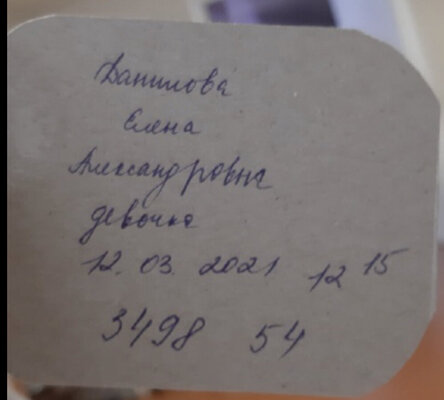 Данилова
Елена
Александровна
девочка
12.03.2021 12 15
3498 54